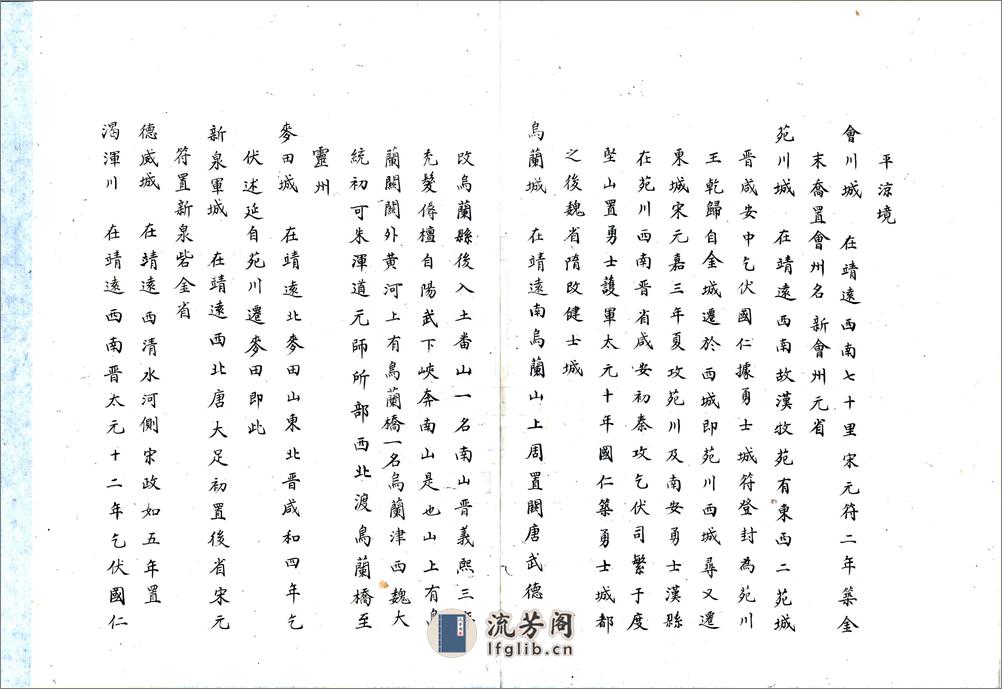 平涼境
會川城　在靖遠西南七十里宋元符二年築金
末喬置會州名新會州元省
苑川城　在靖遠西南故漢牧苑有東西二苑城
晋咸安中乞伏國仁據勇士城符登封為苑川
王乾歸自金城遷於西城即苑川西城尋又遷
東城宋元嘉三年夏攻苑川及南安勇士漢縣
在苑川西南晋省咸安初秦攻乞伏司繁于度
堅山置勇士護軍太元十年國仁築勇士城都
之後魏省隋改健士城
烏蘭城　在靖遠南烏蘭山上周置關唐武德
改烏蘭縣後入土番山一名南山晋義熙三年
禿髮傉檀自陽武下峽奔南山是也山上有烏
蘭關關外黃河上有烏蘭橋一名烏蘭津西魏大
統初可朱渾道元師所部西北渡烏蘭橋至
靈州
麥田城　在靖遠北麥田山東北晋咸和四年乞
伏述延自苑川遷麥田即此
新泉軍城　在靖遠西北唐大足初置後省宋元
符置新泉砦金省
德威城　在靖遠西清水河側宋政如五年置
渴渾川　在靖遠西南晋太元十二年乞伏國仁
流芳阁
lfglib.cn